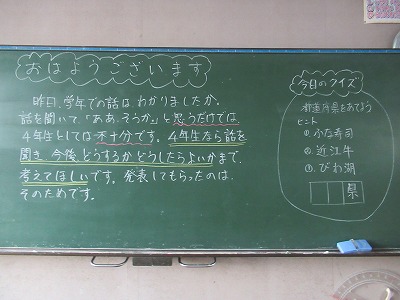 おはようございます
昨日、学年での話はわかりましたか。
話を聞いて、「ああ、そうか。」と思うだけでは、
4年生としては不十分です。4年生なら話を
聞き、今後、どうするかどうしたらよいかまで、
考えてほしいです。発表してもらったのは、
そのためです。
今日のクイズ
都道府県をあてよう
ヒント
①.ふな寿司
②.近江牛
③.びわ湖
県